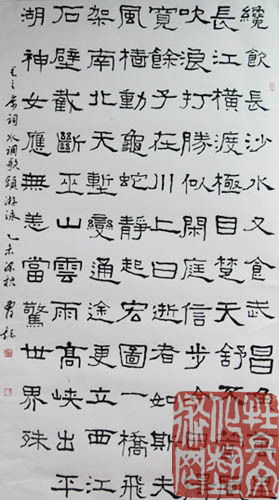 纔飲長沙水又食武昌魚萬里
長江橫渡極目楚天舒不管風
吹浪打勝似閑庭信步今日得
寬餘子在川上曰逝者如斯夫
風檣動龜蛇靜起宏圖一橋飛
架南北天塹變通途更立西江
石壁截斷巫山雲雨高峽出平
湖神女應無恙當驚世界殊
毛主席詞水調歌頭游泳 乙未深秋 曹